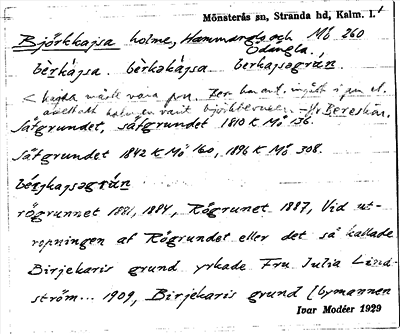 Mönsterås sn, Stranda hd, Kalm. l.
Björkkajsa holme, Hammarglo och Mö 260
Ödängla.
bèrkájsa. bèrkəkájsa berkajsəgrún.
< kajsa måste vara pn. Den har ant. ingått i pn el.
holm en varit björkbevuxen. — Jfr Bereskär.
Säfgrundet, säfgrundet 1810 K Mö 136.
Säfgrundet 1842 K Mö 160, 1896 K Mö 308.
bérjkajsəgrún
rögrunnet 1881, 1884, Rögrunet 1887, Vid ut-
ropningen af Rögrundet eller det så kallade
Birjekaris grund yrkade Fru Julia Lind-
ström... 1909, Birjekaris grund (bymannen
Ivar Modéer 1929